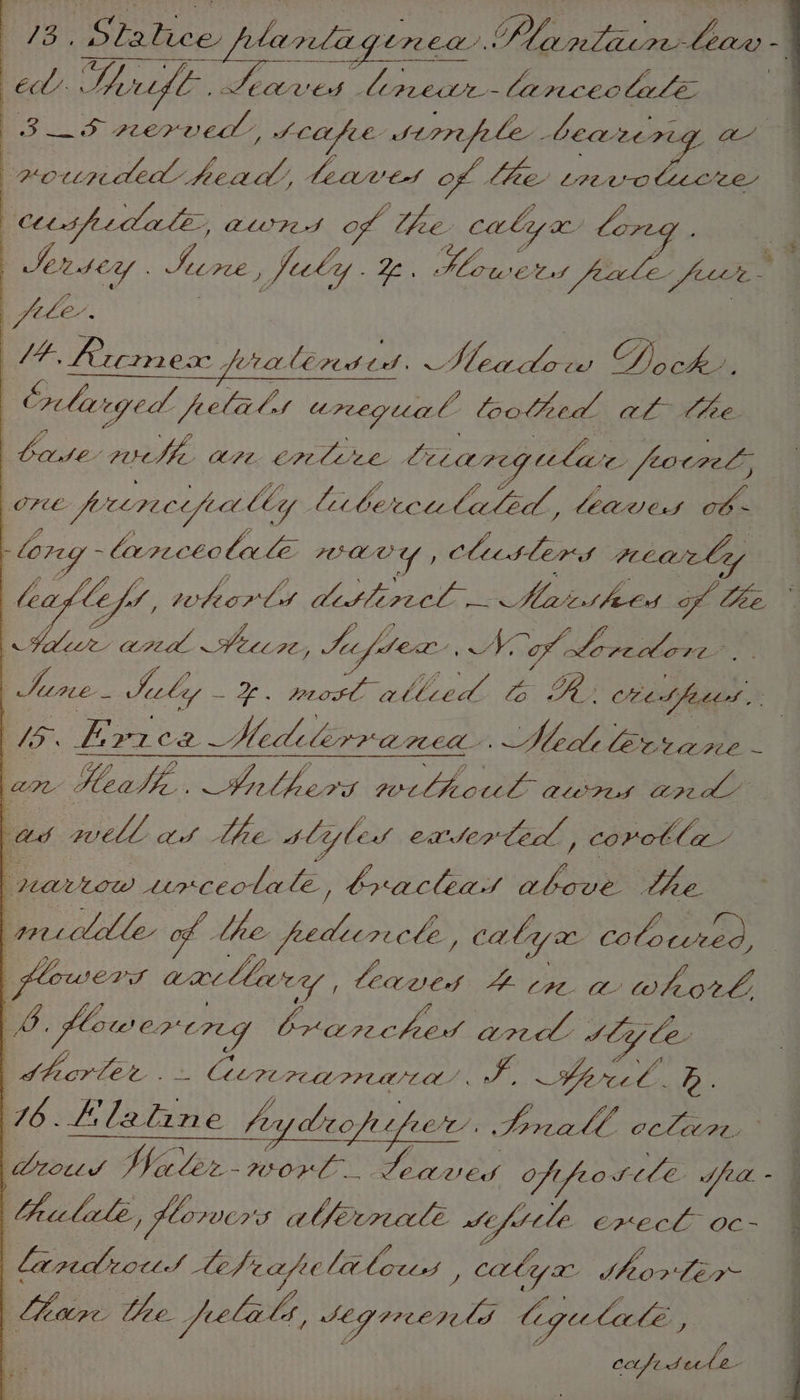 13. Statice plantaginea. Plantain-leav-
ed Thrift. Leaves linear-lanceolate
3_5 nerved, scape simple bearing a
rounded head, leaves of the involucre
cuspidate, awns of the calyx long.
Jersey. June, July. ♃. Flowers pale pur-
ple.
14. Rumex pratensis. Meadow Dock.
Enlarged petals unequal toothed at the
base with an entire triangular point,
one principally tuberculated, leaves ob-
long-lanceolate wavy, clusters nearly
leafless, whorls distinct _ Marshes of the
Adur and Arun, Sussex, N. of London.
June_ July _ ♃. most allied to R. crispus.
15. Erica Mediterranea. Mediterrane-
an Heath. Anthers without awns and
as well as the styles exserted, corolla
narrow urceolate, bracteas above the
middle of the peduncle, calyx coloured,
flowers axillary, leaves 4 in a whorl,
β. flowering branches and style
shorter. _ Cunnamara. F. April. ♄.
16. Elatine hydropiper. Small octan
drous Water-wort _ Leaves opposite spa-
thulate, flowers alternate sessile erect oc-
tandrous tetrapetalous, calyx shorter
than the petals, segments ligulate,
capsule